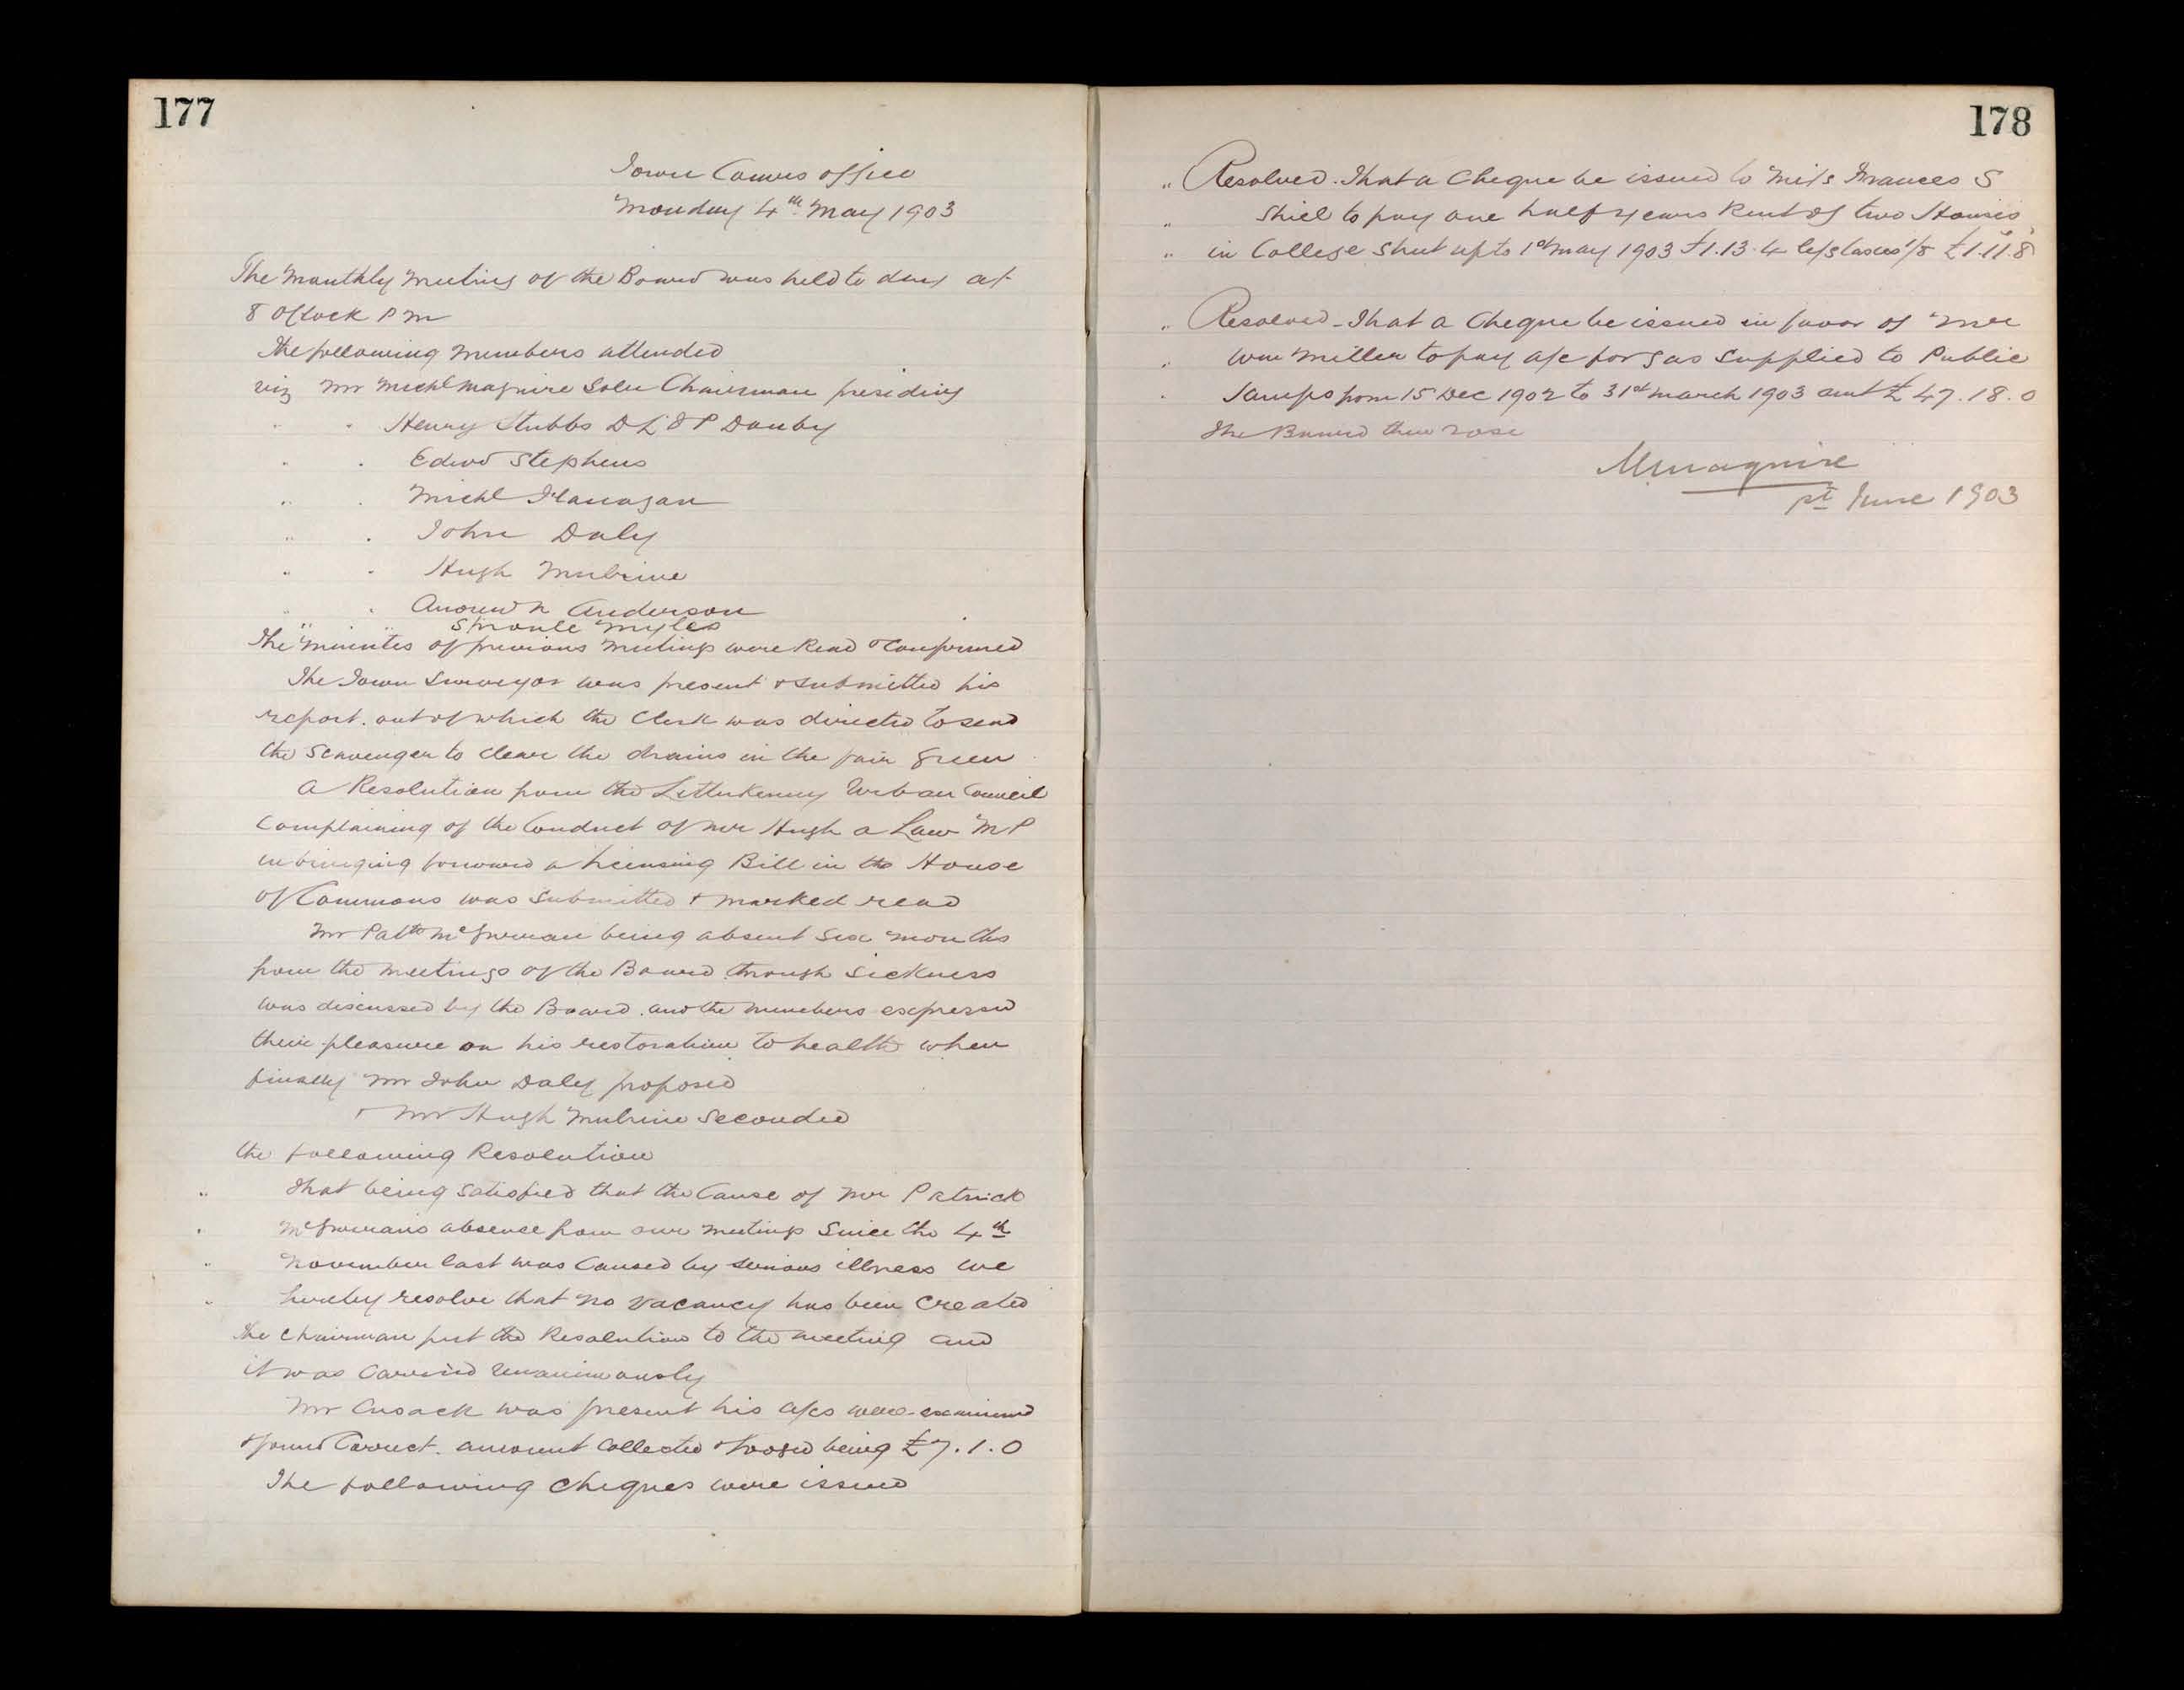 177
Town Comrs office
Monday 4th May 1903
The Monthly Meeting of the Board was held to day at
8 OClock P m
The following Members attended
viz Mr Michl Maguire Solr Chairman presiding
" " Henry Stubbs D L J P Danby
" " Edwd Stephens
" " Michl Flanagan
" " John Daly
" " Hugh Mulrine
" " Andrew N Anderson
" " Sproule Myles
The minutes of previous Meetings were Read & Confirmed
The Town Surveyor was present & submitted his
report. out of which the Clerk was directed to send
the Scavenger to clear the drains in the fair green
A Resolution from the Letterkenny Urban Council
Complaining of the Conduct of Mr Hugh a Law M P
in bringing forward a Licensing Bill in the House
of Commons was submitted & marked read
Mr Patk McGowan being absent Six months
from the meetings of the Board through sickness
was discussed by the Board. and the members expressed
their pleasure on his restoration to health when
finally Mr John Daly proposed
& Mr Hugh Mulrine Seconded
the following Resolution
" That being satisfied that the Cause of Mr Patrick
" McGowans absence from our meetings Since the 4th
" November last was Caused by serious illness we
" hereby resolve that no vacancy has been Created
The Chairman put the Resolution to the meeting and
it was Carried unanimously
Mr Cusack was present his a/cs were examined
& found Correct. amount Collected & lodged being £7.1.0
The following Cheques were issued
178
" Resolved. That a Cheque be issued to Miss Frances S
" Shiel to pay one half years Rent of two Houses
" in College Street up to 1st May 1903 £1.13.4 less taxes 1/8 £1.11.8
" Resolved - That a Cheque be issued in favor of Mr
" Wm Miller to pay a/c for gas supplied to Public
" Lamps from 15 Dec 1902 to 31st March 1903 amt £47.18.0
The Board then rose
M Maguire
1st June 1903